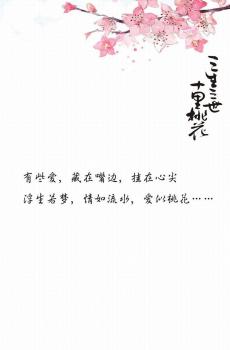 三生三世
十里桃花
有些爱，藏在嘴边，挂在心尖
浮生若梦，情如流水，爱似桃花……